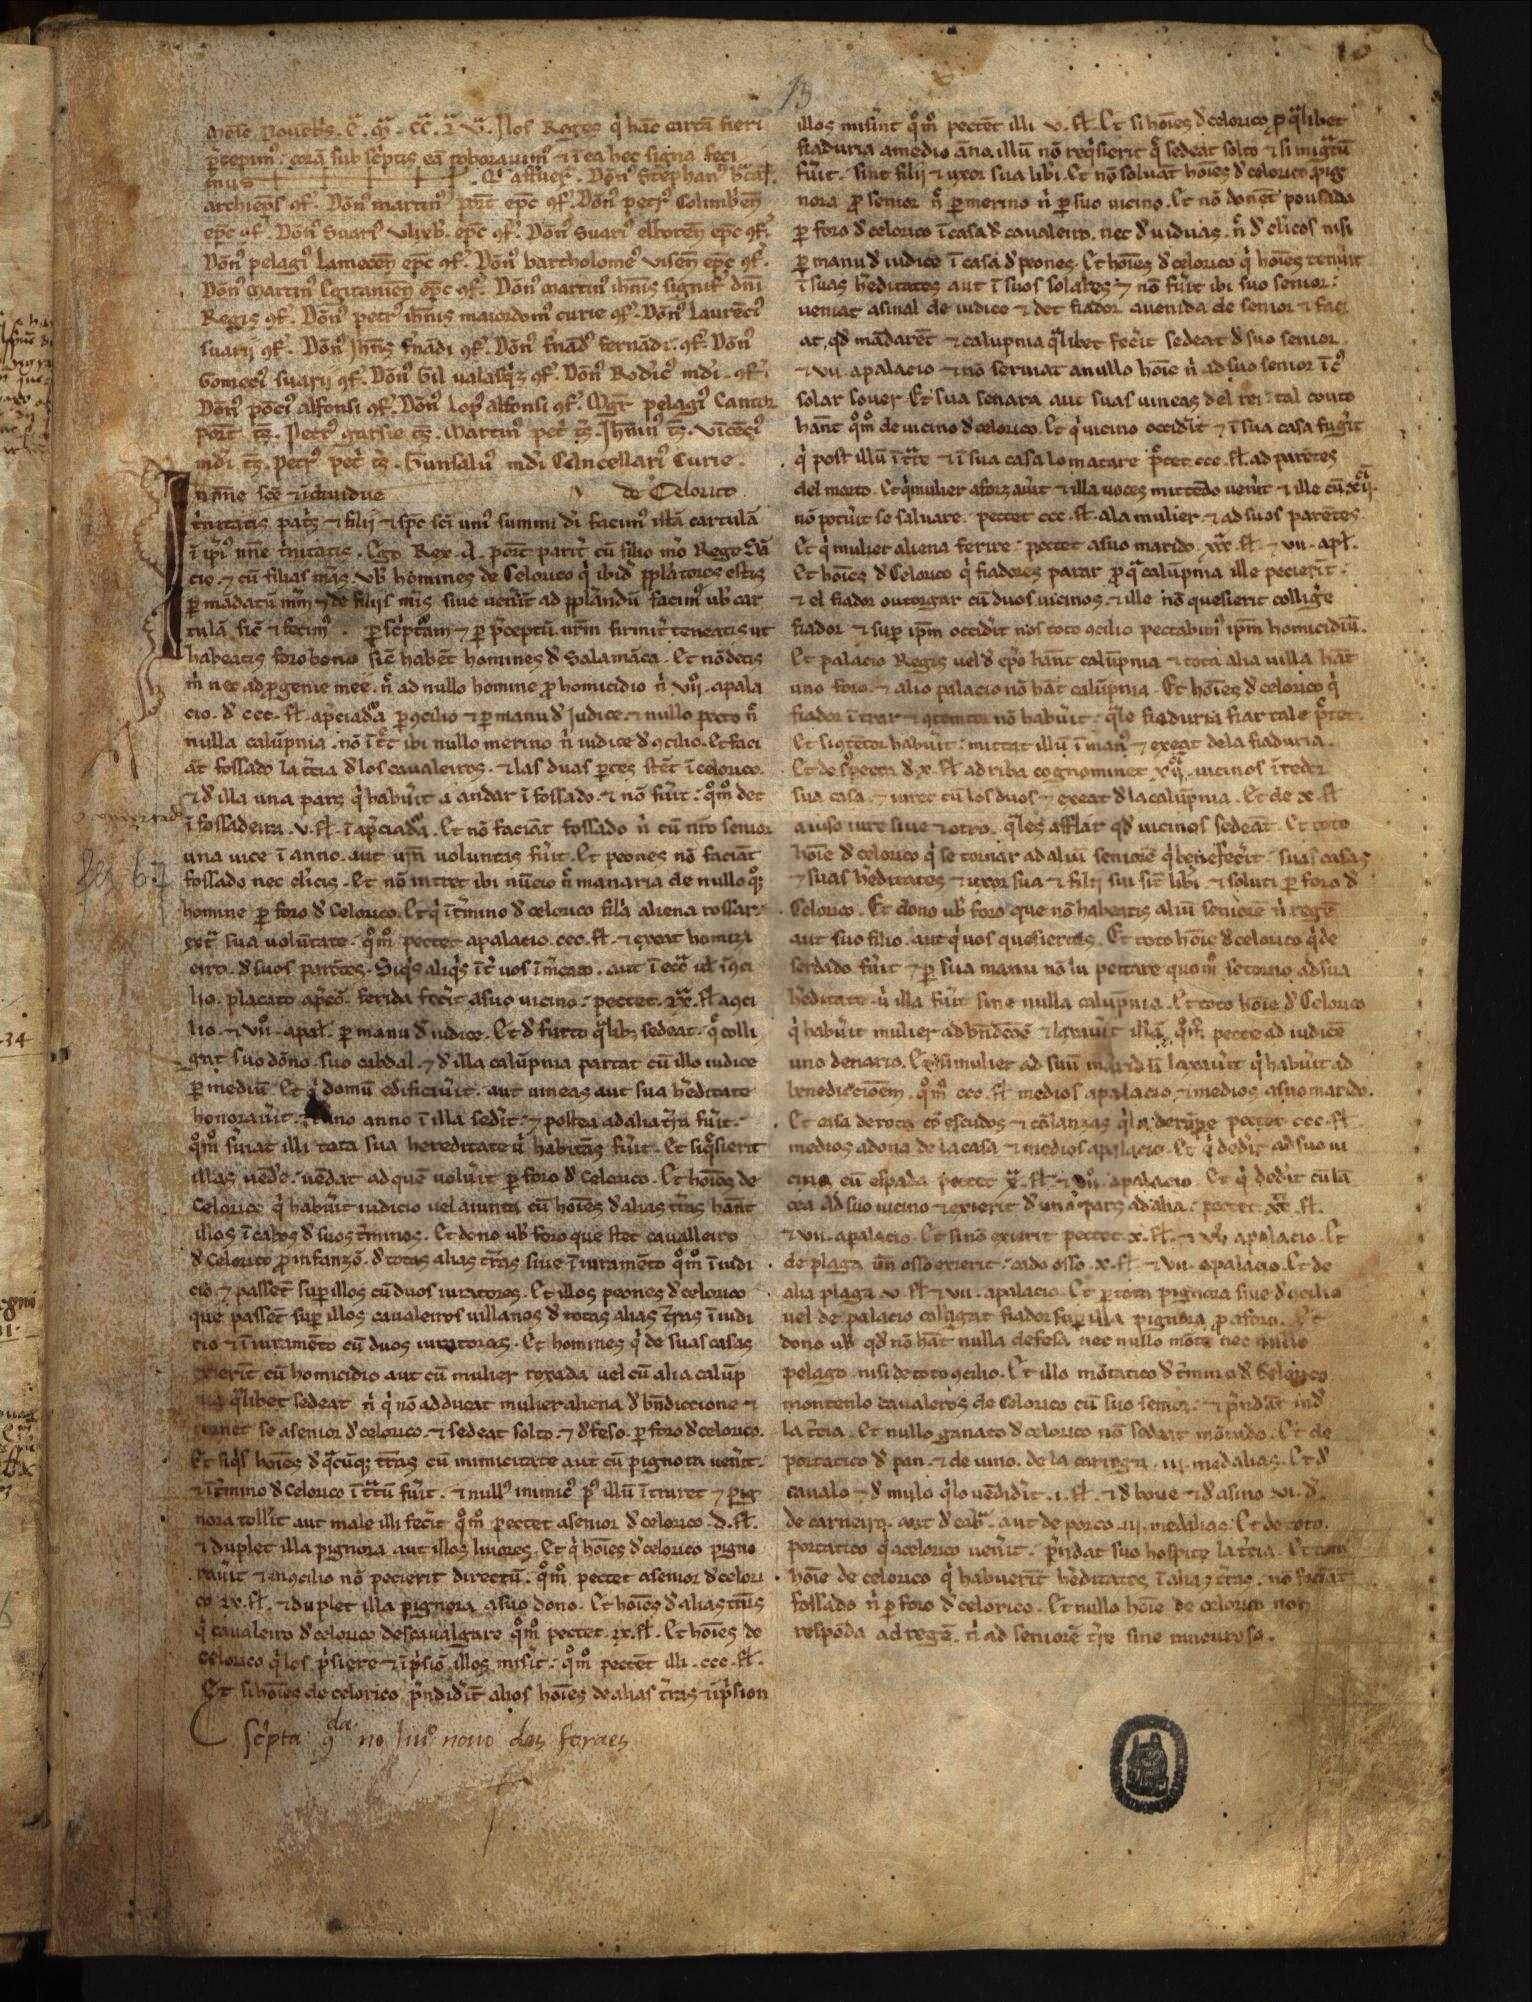 13
Nos Reges q̇ hāc cartā fieri
p̄cepim᷒ corā sub sc̄ptis eā roborauim᷒ ⁊ ī ea hec signa feci
m᷒ . Q̇ affuer̄t . Don̄ Stephan᷒
archiep̄s ɔf̄. Don̄ martin᷒ port̄ ep̄c ɔf̄. Don̄ petr᷒ Colimbr̄en̄
ep̄c ɔf̄. Don̄ Suari᷒ Vlixb̄. ep̄c ɔf̄. Don̄ Suari᷒ elboren̄ ep̄c ɔf̄.
Don̄ pelagi᷒ Lamecen̄ ep̄c ɔf̄. Don̄ bartholome᷒ visen̄ ep̄c ɔf̄.
Don̄ Martin᷒ Egitanien̄ ep̄c ɔf̄. Don̄ Martin᷒ ioh̄nis signif̄ dn̄i
Regis ɔf̄. Don̄ petr᷒ ioh̄nis maiordom᷒ curie ɔf̄. Don̄ Laurēci᷒
suarij ɔf̄. Don̄ Joh̄nis fn̄ādi ɔf̄. Don̄ fn̄ād᷒ fernādi. ɔf̄. Don̄
Gomeci᷒ suarij ɔf̄. Don̄ Gil ualasq̄z ɔf̄. Don̄ Rodic᷒ mdi. ɔf̄.
Don̄ pōci᷒ alfonsi ɔf̄. Don̄ Lop᷒ alfonsi ɔf̄. Mgr̄ pelagi᷒ Cantor
port̄ tz̄. Petr᷒ garsie tz̄. Martin᷒ pet̄ tz̄. Joh̄nin᷒ tz̄. Vincēci᷒
mdi tz̄. Petr᷒ pet̄ tz̄. Gunsalu᷒ mdi Cancellari᷒ Curie.
In noīe sc̄e ⁊ īdiuidue de Celorico
t̄nitatis pat̄s ⁊ filij ⁊ sp̄c sc̄i uni᷒ summi di facim᷒ istā cartulā
ī ip̄i᷒ un̄e t̄nitatis. Ego Rex. A. port̄ parit̄ cū filio m̄o Rege Sā
cio ⁊ cū filias m̄as ub̄ homines de Celorico q̇ ibid̄ pplatores estis
p̄ mādatū m̄m ⁊ de filijs m̄is siue uen̄it ad pplandū facim᷒ ub̄ car
tulā sic̄ ⁊ fecim᷒ . p̄ sc̄ptam ⁊ p̄ p̄ceptū ur̄m firmit̄ teneatis ut
habeatis foro bono sic̄ habēt homines d̄ Salamāca. Et nō detis
m̄ nec ad p̄genie mee. n̄ ad nullo homine ꝓ homicidio n̄ vij. apala
cio. d̄ ccc. st̄. ap̄ciadᵃ p̄ ɔcilio ⁊ p̄ manu d̄ Judice. ⁊ nullo pecto n̄
nulla calūpnia. nō īt̄t ibi nullo merino n̄ iudice d̄ ɔcilio. Et faci
āt fossado la t̄cia d̄ los cavaleiros. ⁊ las duas p̄tes stēt ī celorico.
⁊ d̄ illa una pars q̇ habūit a andar ī fossado. ⁊ nō fūit. q̊m̊ det
ī fossadeira. v. st̄. ī ap̄ciadᵃ. Et nō faciāt fossado n̄ cū nr̄o senior
una vice ī anno. aut ur̄a uoluntas fūit. Et peones nō faciāt
fossado nec cl̄icis. Et nō mitet ibi nūcio n̄ manaria de nullo q̊z
homine p̄ foro d̄ Celorico. Et q̇ ī t̄mino d̄ celorico filā aliena rossar̄
ext̄ sua uolūtate. q̊m̊ pectet apalacio. ccc. st̄. ⁊ exeat homizi
eiro. d̄ suos parētes. Siq̄s aliq̄s īt̄ uos ī m̄cato. aut ī ecc̄a ul̄ ī ɔci
lio. placato ap̄cō. ferida fec̄it asuo uicino. pectet. lx. st̄ a ɔci
lio. ⁊ vij. apal̄. p̄ manu d̄ iudice. Et d̄ furto q̄lib; sedeat. q̄ colli
gat suo dōno. suo cabdal. ⁊ d̄ illa calūpnia partat cū illo iudice
p̄ mediū. Et q̇ domū edificiūit. aut uineas aut sua h̄editate
honorauīt. ⁊ uno anno ī illa sed̄it. ⁊ postea ad alia t̄ra fūit.
q̊m̊ seruiat illi tota sua hereditate ū habitās fūit. Et siq̄sierit
illas uēd̄e. uēdat ad quē uolūit p̄ foro d̄ Celorico. Et hoīes de
Celorico q̇ habūit iudicio uel aiunta cū hoīes d̄ alias t̄ras habn̄t
illos ī cabos d̄ suos t̄minos. Et dono ub̄ foro que stet cavalleiro
d̄ Celorico ꝓ infanzō. d̄ totas alias t̄ras siue ī iuramēto q̊m̊ ī iudi
cio ⁊ passēt sup̄ illos cū duos iuratores. Et illos peones d̄ celorico
que passēt sup̄ illos cavaleiros uillanos d̄ totas alias t̄ras ī iudi
cio ⁊ ī iuramēto cū duos iuratores. Et homines q̇ de suas casas
exierīt cū homicidio aut cū mulier roxada uel cū alia calūp
nia q̄libet sedeat n̄ q̇ nō adducat mulier aliena d̄ bn̄diccione ⁊
tornet se asenior d̄ celorico. ⁊ sedeat solto. ⁊ d̄feso. p̄ foro d̄ celorico.
Et siq̄s hoīes d̄ q̄cūq; t̄ras cū inimicitate aut cū pignora uen̄it.
⁊ ī t̄mino d̄ Celorico īt̄tū fūit. ⁊ null᷒ inimic᷒ p᷒ illū īt̄ret ⁊ pig
nora toll̄it aut male illi fec̄it q̊m̊ pectet asenior d̄ celorico. D. st̄.
⁊ duplet illa pignora aut illos liuores. Et q̇ hoīes d̄ celorico pigno
raūit ⁊ in ɔcilio nō pecierit directū. q̊m̊ pectet asenior d̄ celori
co lx. st̄. ⁊ duplet illa pignora asuo dono. Et hoīes d̄ alias t̄ras
q̇ cavaleiro d̄ celorico descaualgare q̊m̊ pectet. lx. st̄. Et hoīes de
Celorico q̇ los p̄siere ⁊ ī p̄siō illos misīt. q̊m̊ pectēt illi. ccc. st̄.
Et si hoīes de celorico p̄ndid̄it alios hoīes de alias t̄ras ⁊ ī p̄sion
illos misīnt q̊m̊ pectēt illi v. st̄. Et si hoīes d̄ celorico ꝓ q̄libet
fiaduria amedio āno illū nō req̄sierit q̇ sedeat solto ⁊ si migtū
fūit. sint filij ⁊ uxor sua lib̄i. Et nō soluāt hoīes d̄ celorico pig
nora ꝓ senior n̄ p̄ merino n̄ p̄ suo uicino. Et nō donēt pousada
p̄ foro d̄ celorico ī casa d̄ cavaleiro. nec d̄ uiduas. n̄ d̄ cl̄icos nisi
p̄ manu d̄ iudice ī casa d̄ peones. Et hoīes d̄ celorico q̇ hoīes tenūit
ī suas h̄editates aut ī suos solares ⁊ nō fūit ibi suo senior.
ueniat asinal de iudice ⁊ det fiador auenida de senior ⁊ faci
at qd̄ mādarēt ⁊ calupnia q̄libet fec̄it sedeat d̄ suo senior.
⁊ vij. apalacio ⁊ nō seruiat anullo hoīe n̄ ad suo senior ī c᷒
solar souer. Et sua senara aut suas uineas del rei. tal couto
habn̄t q̊m̊ de uicino d̄ celorico. Et q̇ uicino occid̄it ⁊ ī sua casa fuḡit
q̇ post illū īt̄re ⁊ ī sua casa lo matare p̄ctet ccc. st̄. ad parētes
del morto. Et q̇ mulier aforzaūit ⁊ illa uoces mittēdo uen̄it ⁊ ille cū xij.
nō potūit se saluare. pectet ccc. st̄. ala mulier. ⁊ ad suos parētes.
Et q̇ mulier aliena ferire. pectet asuo marido. xxx. st̄. ⁊ vij. apl̄.
Et hoīes d̄ Celorico q̇ fiadores parar ꝓ q̄ calūpnia ille pecierit.
⁊ el fiador outorgar cū duos uicinos. ⁊ ille nō quesierit collige
fiador ⁊ sup̄ ip̄m occid̄it nos toto ɔcilio pectabim᷒ ip̄m homicidiū.
Et palacio Regis uel d̄ ep̄o habn̄t calūpnia ⁊ tota alia uilla hāt
uno foro. ⁊ alio palacio nō hāt calūpnia. Et hoīes d̄ celorico q̇
fiador īt̄rar ⁊ ɔtemtor nō habūit. q̄le fiaduria fiar tale p̄ctet.
Et si ɔtētor habūit. mittat illū ī man᷒ ⁊ exeat dela fiaduria.
Et de s᷒pecta d̄ x. st̄ ad riba cognominet xij. uicinos ī redor
sua casa. ⁊ iuret cū los duos ⁊ exeat d̄ la calūpnia. Et de x. st̄
aiuso iure siue ⁊ otro. q̄les afflāt qd̄ uicinos sedeāt. Et toto
hoīe d̄ celorico q̇ se tornar ad aliū seniorē q̇ benefec̄it. suas casas
⁊ suas h̄editates ⁊ uxor sua ⁊ filij sui sīt lib̄i ⁊ soluti p̄ foro d̄
Celorico. Et dono ub̄ foro que nō habeatis aliū seniorē n̄ regē
aut suo filio. aut q̇ uos quesieretis. Et toto hoīe d̄ celorico q̇ de
serdado fūit ⁊ p̄ sua manu nō lu peitare quom̊ se torno ad sua
h̄editate ū illa fūit sine nulla calupnia. Et toto hoīe d̄ Celorico
q̇ habūit mulier ad bn̄dicōe ⁊ laxaūit illā. q̊m̊ pecte ad iudice
uno denario. Et si mulier ad suū maridū laxaūit q̇ habūit ad
benediccionē. q̊m̊ ccc. st̄ medios apalacio ⁊ medios asuo marido.
Et casa derota cō escudos ⁊ cō lanzas q̇ la derūpe pectet ccc. st̄
medios adona de la casa ⁊ medios apalacio. Et q̇ ded̄it ad suo ui
cino cū espada pectet x. st̄. ⁊ vij. apalacio. Et q̇ ded̄it cū lā
cea ad suo uicino ⁊ exierit d̄ una pars ad alia. pectet xx. st̄.
⁊ vij. apalacio. Et sinō exierit pectet x. st̄. ⁊ vij. apalacio. Et
de plaga un̄ osso exierit. cado osso. x. st̄. ⁊ vij. apalacio. Et de
alia plaga v. st̄ ⁊ vij. apalacio. Et p̄ tota pignora siue d̄ ɔcilio
uel de palacio colligat fiador sup̄ illa pignora ꝓ aforo. Et
dono ub̄ qd̄ nō hāt nulla defesa nec nullo mōte nec nullo
pelago nisi de toto ɔcilio. Et illo mōtatico d̄ t̄mino d̄ Celorico
montenlo cavaleiros de Celorico cū suo senior. ⁊ p̄ndāt ind̄
la t̄cia. Et nullo ganato d̄ celorico nō sedeat mōtado. Et de
portatico d̄ pan ⁊ de uino. de la carrega. iij. medalias. Et d̄
cavalo ⁊ d̄ mulo q̇ lo uēdid̄it. i. st̄. ⁊ d̄ boue ⁊ d̄ asino vi. d̄.
de carneiro. aut d̄ cabr̄. aut de porco. iij. medalias. Et de toto
portatico q̇ acelorico uen̄it. p̄ndat suo hospite la t̄cia. Et toto
hoīe de celorico q̇ habuerīt h̄editates ī alias t̄ras. nō faciat
fossado n̄ p̄ foro d̄ celorico. Et nullo hoīe de celorico non
respōda ad regē. n̄ ad seniorē t̄re sine rancuroso.
sc̄pta ɔda no liu᷒ nouo dos foraes